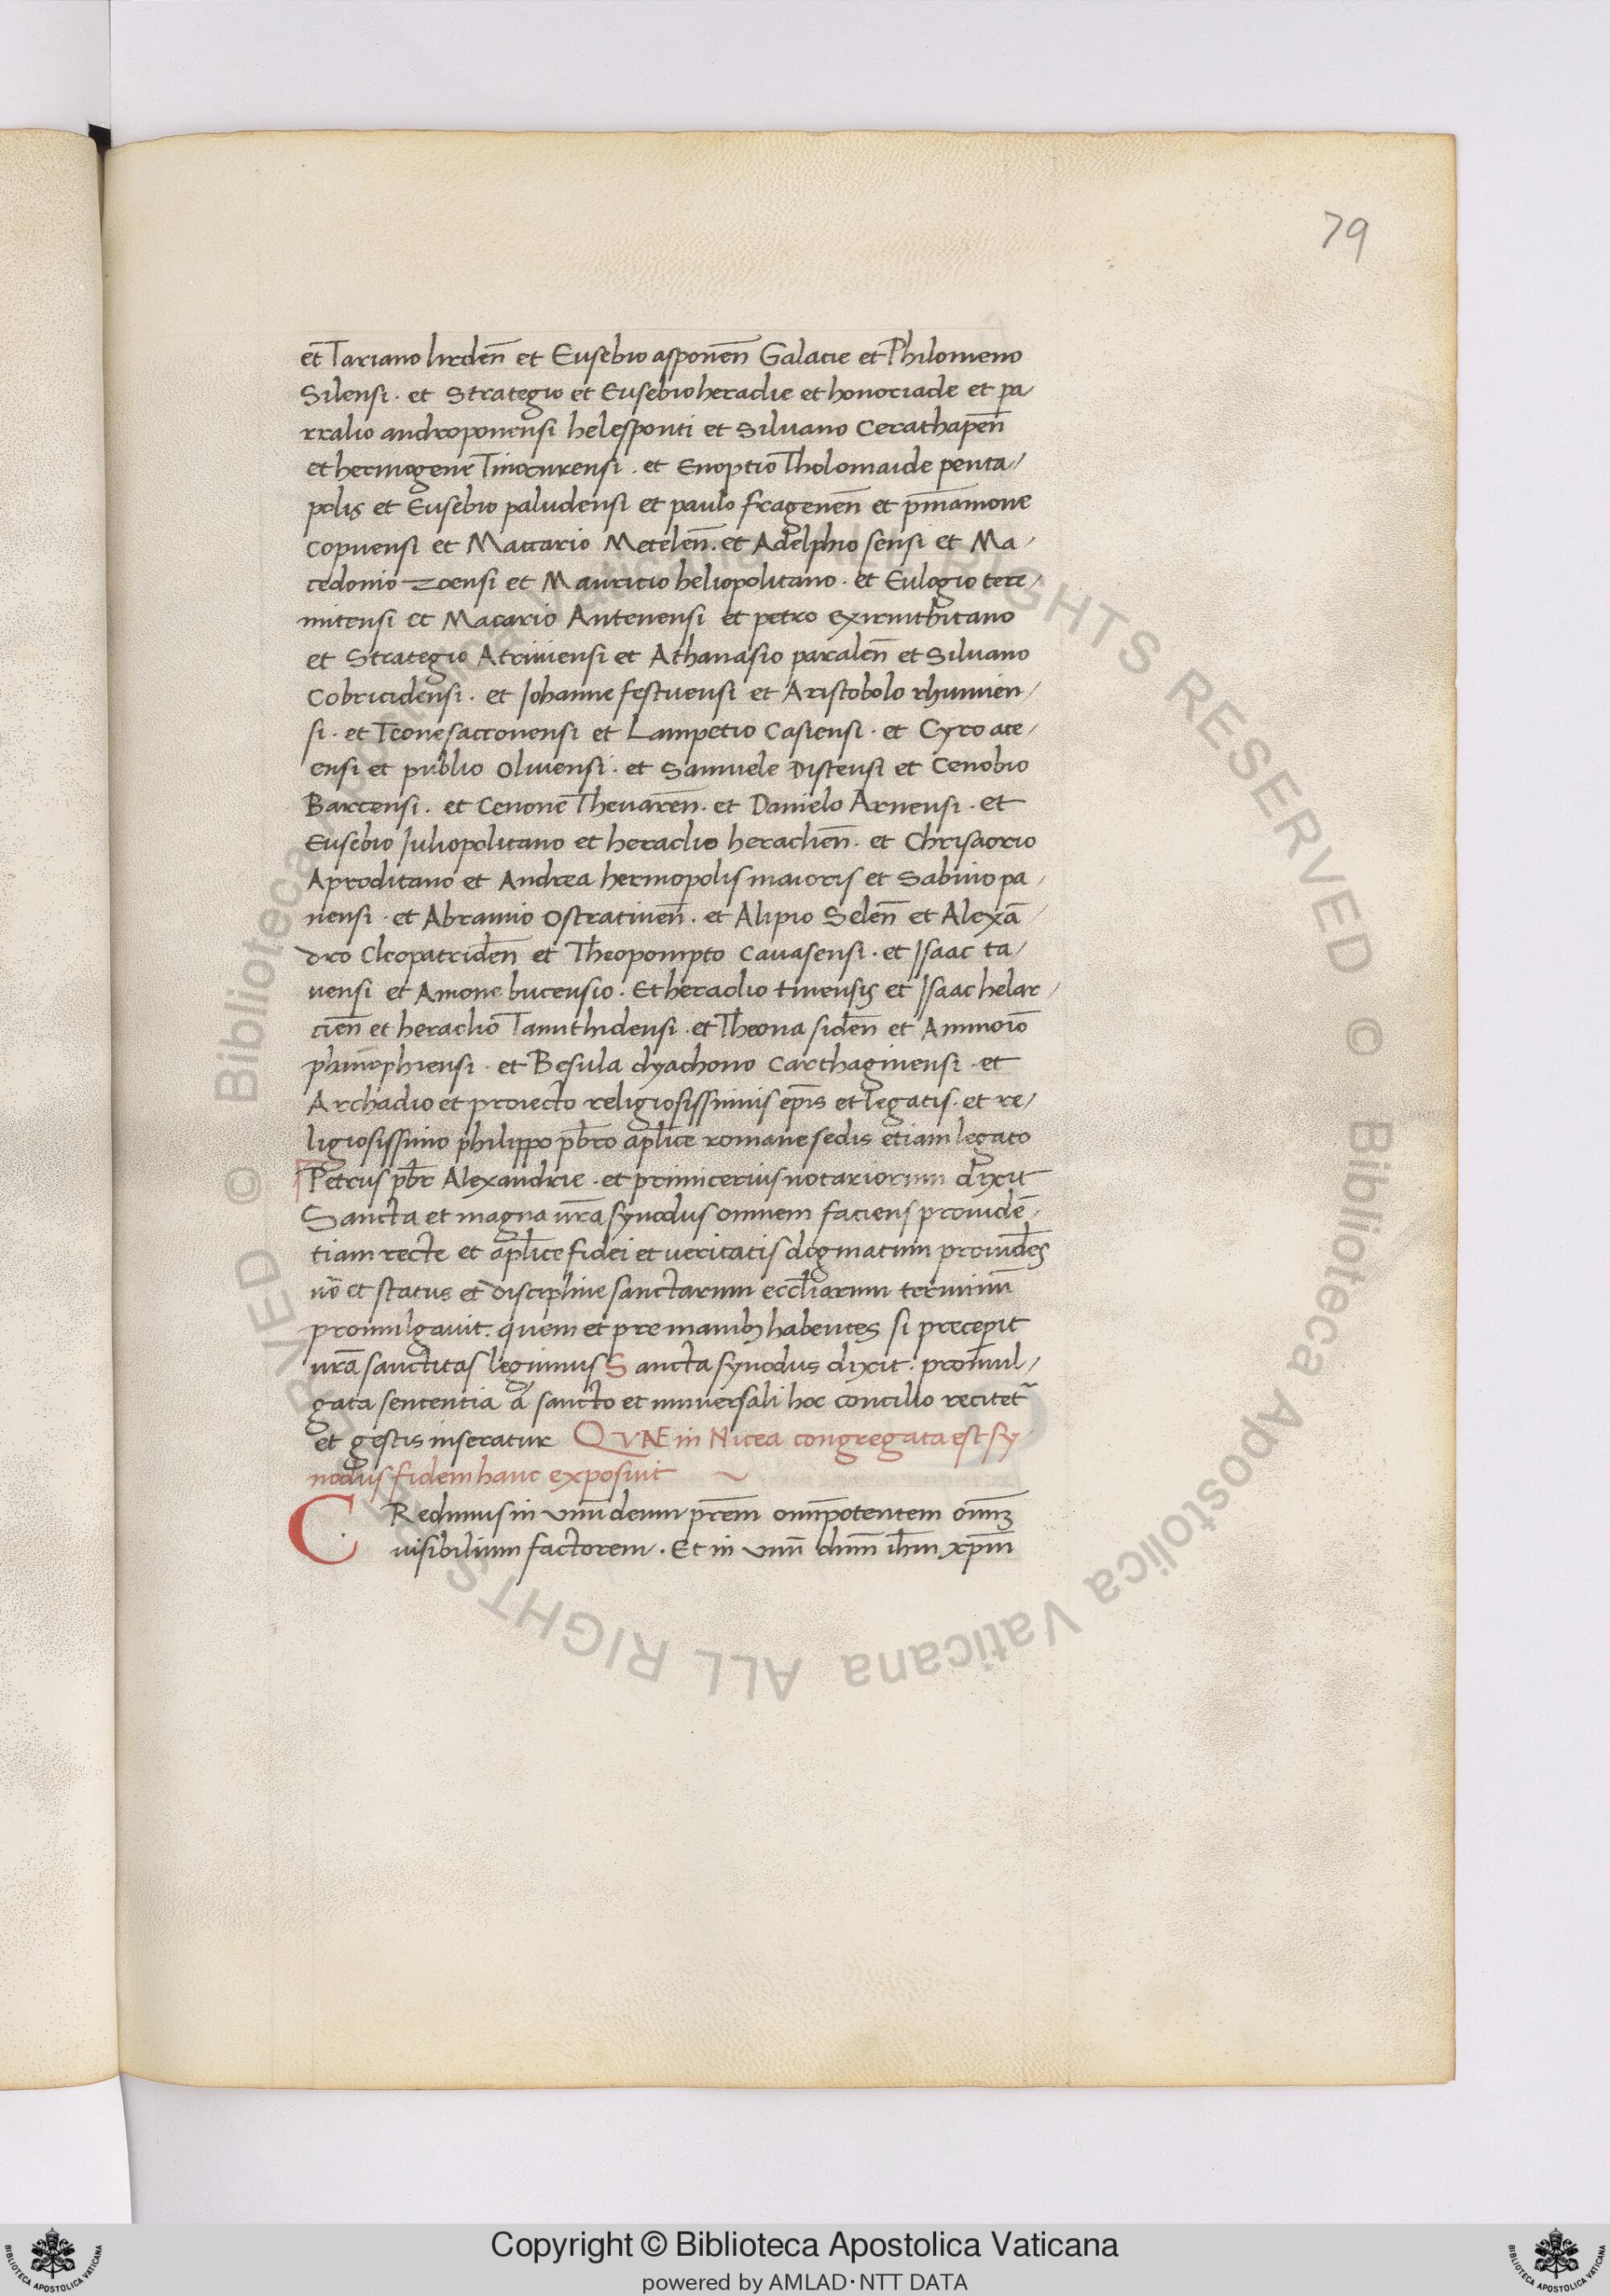 79
et Tariano lirdeñ et Eusebio asponeñ Galacie et Philomeno
Silensi · et Strategio et Eusebio heraclie et honoriade et pa/
rralio androponensi helesponti et Siluano Cerathapeñ
et hermogene Tinocurensi · et Enoptio Tholomaide penta/
polis et Eusebio paludensi et paulo frageneñ et pm̄amone
Copuensi et Maccario Meteleñ. et Adelphio sensi et Ma/
cedonio zoensi et Mauricio heliopolitano · et Eulogio tere/
nutensi et Macario Antenensi et petro exirnithitano
et Strategio Atriuiensi et Athanasio paraleñ et Siluano
Cobricidensi · et Johanne festuensi et Aristobolo thumien/
si · et Teone saccouensi et Lampetio Casiensi · et Cyro ate/
ensi et publio Oliuensi · et Samuele Distensi et Cenobio
Barcensi · et Cenone Theuareñ. et Danielo Arnensi · et
Eusebio Juliopolitano et heraclio heraclieñ. et Chrisaorio
Aproditano et Andrea hermopolis maioris et Sabino pa/
nensi · et Abramio Ostratineñ. et Alipio Seleñ et Alexā/
dro Cleopatrideñ et Theopompto Cauasensi · et Isaac ta/
uensi et Amone bucensio · Et heraclio tinensis et Isaac helar/
cieñ et heraclio Tamthidensi · et Theona sideñ et Ammoiō
phinophiensi · et Besula dyachono Carthaginensi · et
Archadio et proiecto religiosissimis ep̄is et legatis · et re/
ligiosissimo philippo pb̄ro apl̄ice romane sedis etiam legato
Petrus pb̄r Alexandrie · et primicerius notariorum dixit
Sancta et magna ūra synodus omnem faciens prouidē/
tiam recte et apl̄ice fidei et ueritatis dogmatum prouidēs
nō et status et discipline sanctarum eccl̄iarum terminū
promulgauit. quem et pre manibꝫ habentes si precepit
ūra sanctitas legimus Sancta synodus dixit. promul/
gata sententia a sancto et uniuersali hoc concillo recitet~
et gestis inseratur QVAE in Nicea congregata est sy
nodus fidem hanc exposuit ~
CRedimus in vnū deum p̄rem omīpotentem om̄iꝫ
uisibilium factorem · Et in vnū dn̄m ih̄m xp̄m
© Biblioteca Apostolica Vaticana ALL RIGHTS RESERVED © Biblioteca Apostolica Vaticana ALL RIGHTS RESERVED
Copyright © Biblioteca Apostolica Vaticana
powered by AMLAD·NTT DATA
BIBLIOTECA APOSTOLICA VATICANA
BIBLIOTECA APOSTOLICA VATICANA